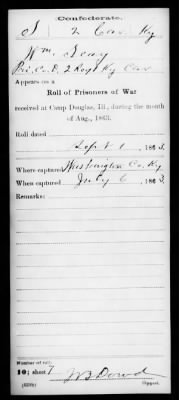 Confederate.
S 2 Cav. Ky
Wm. Seay
Pri, Co. D, 2 Regt Ky Cav
Appears on a
Roll of Prisoners of War
received at Camp Douglas, Ill., during the month
of Aug., 1863.
Roll dated
Sept 1, 1863.
Where captured Washington Co. Ky
When captured July 6, 1863
Remarks:
Number of roll:
10; sheet 7
Copyist.